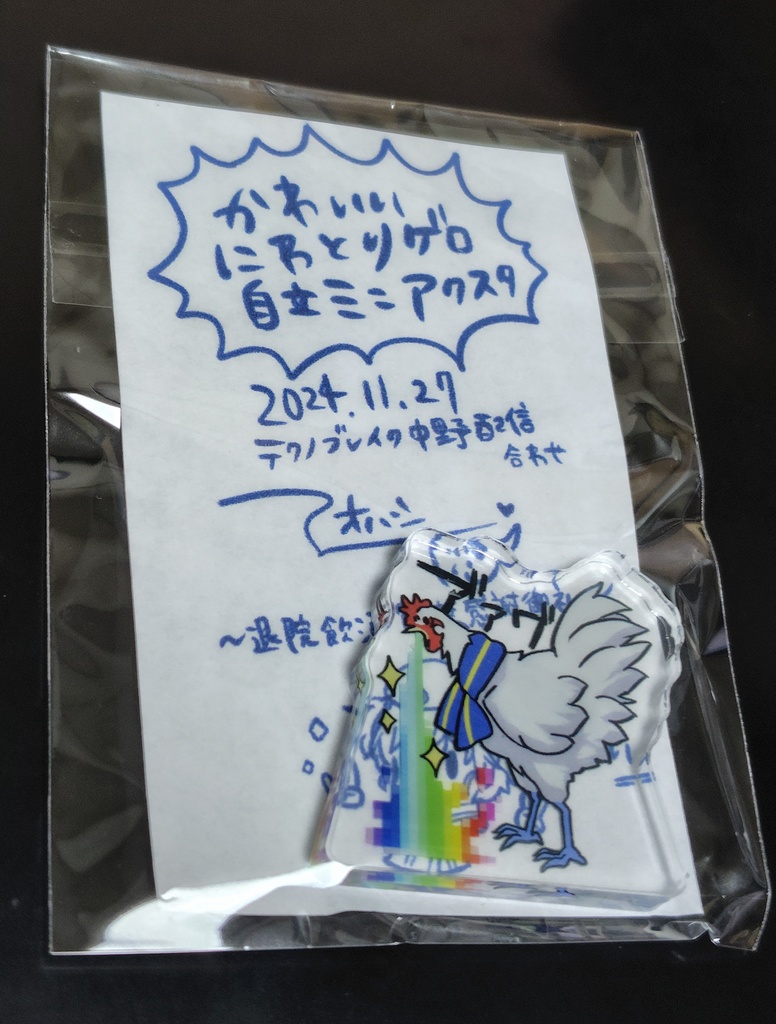 かわいい
にわとりゲロ
自立ミニアクスタ
2024.11.27
テクノブレイク中野配信
合わせ
オハシ
～退院飲